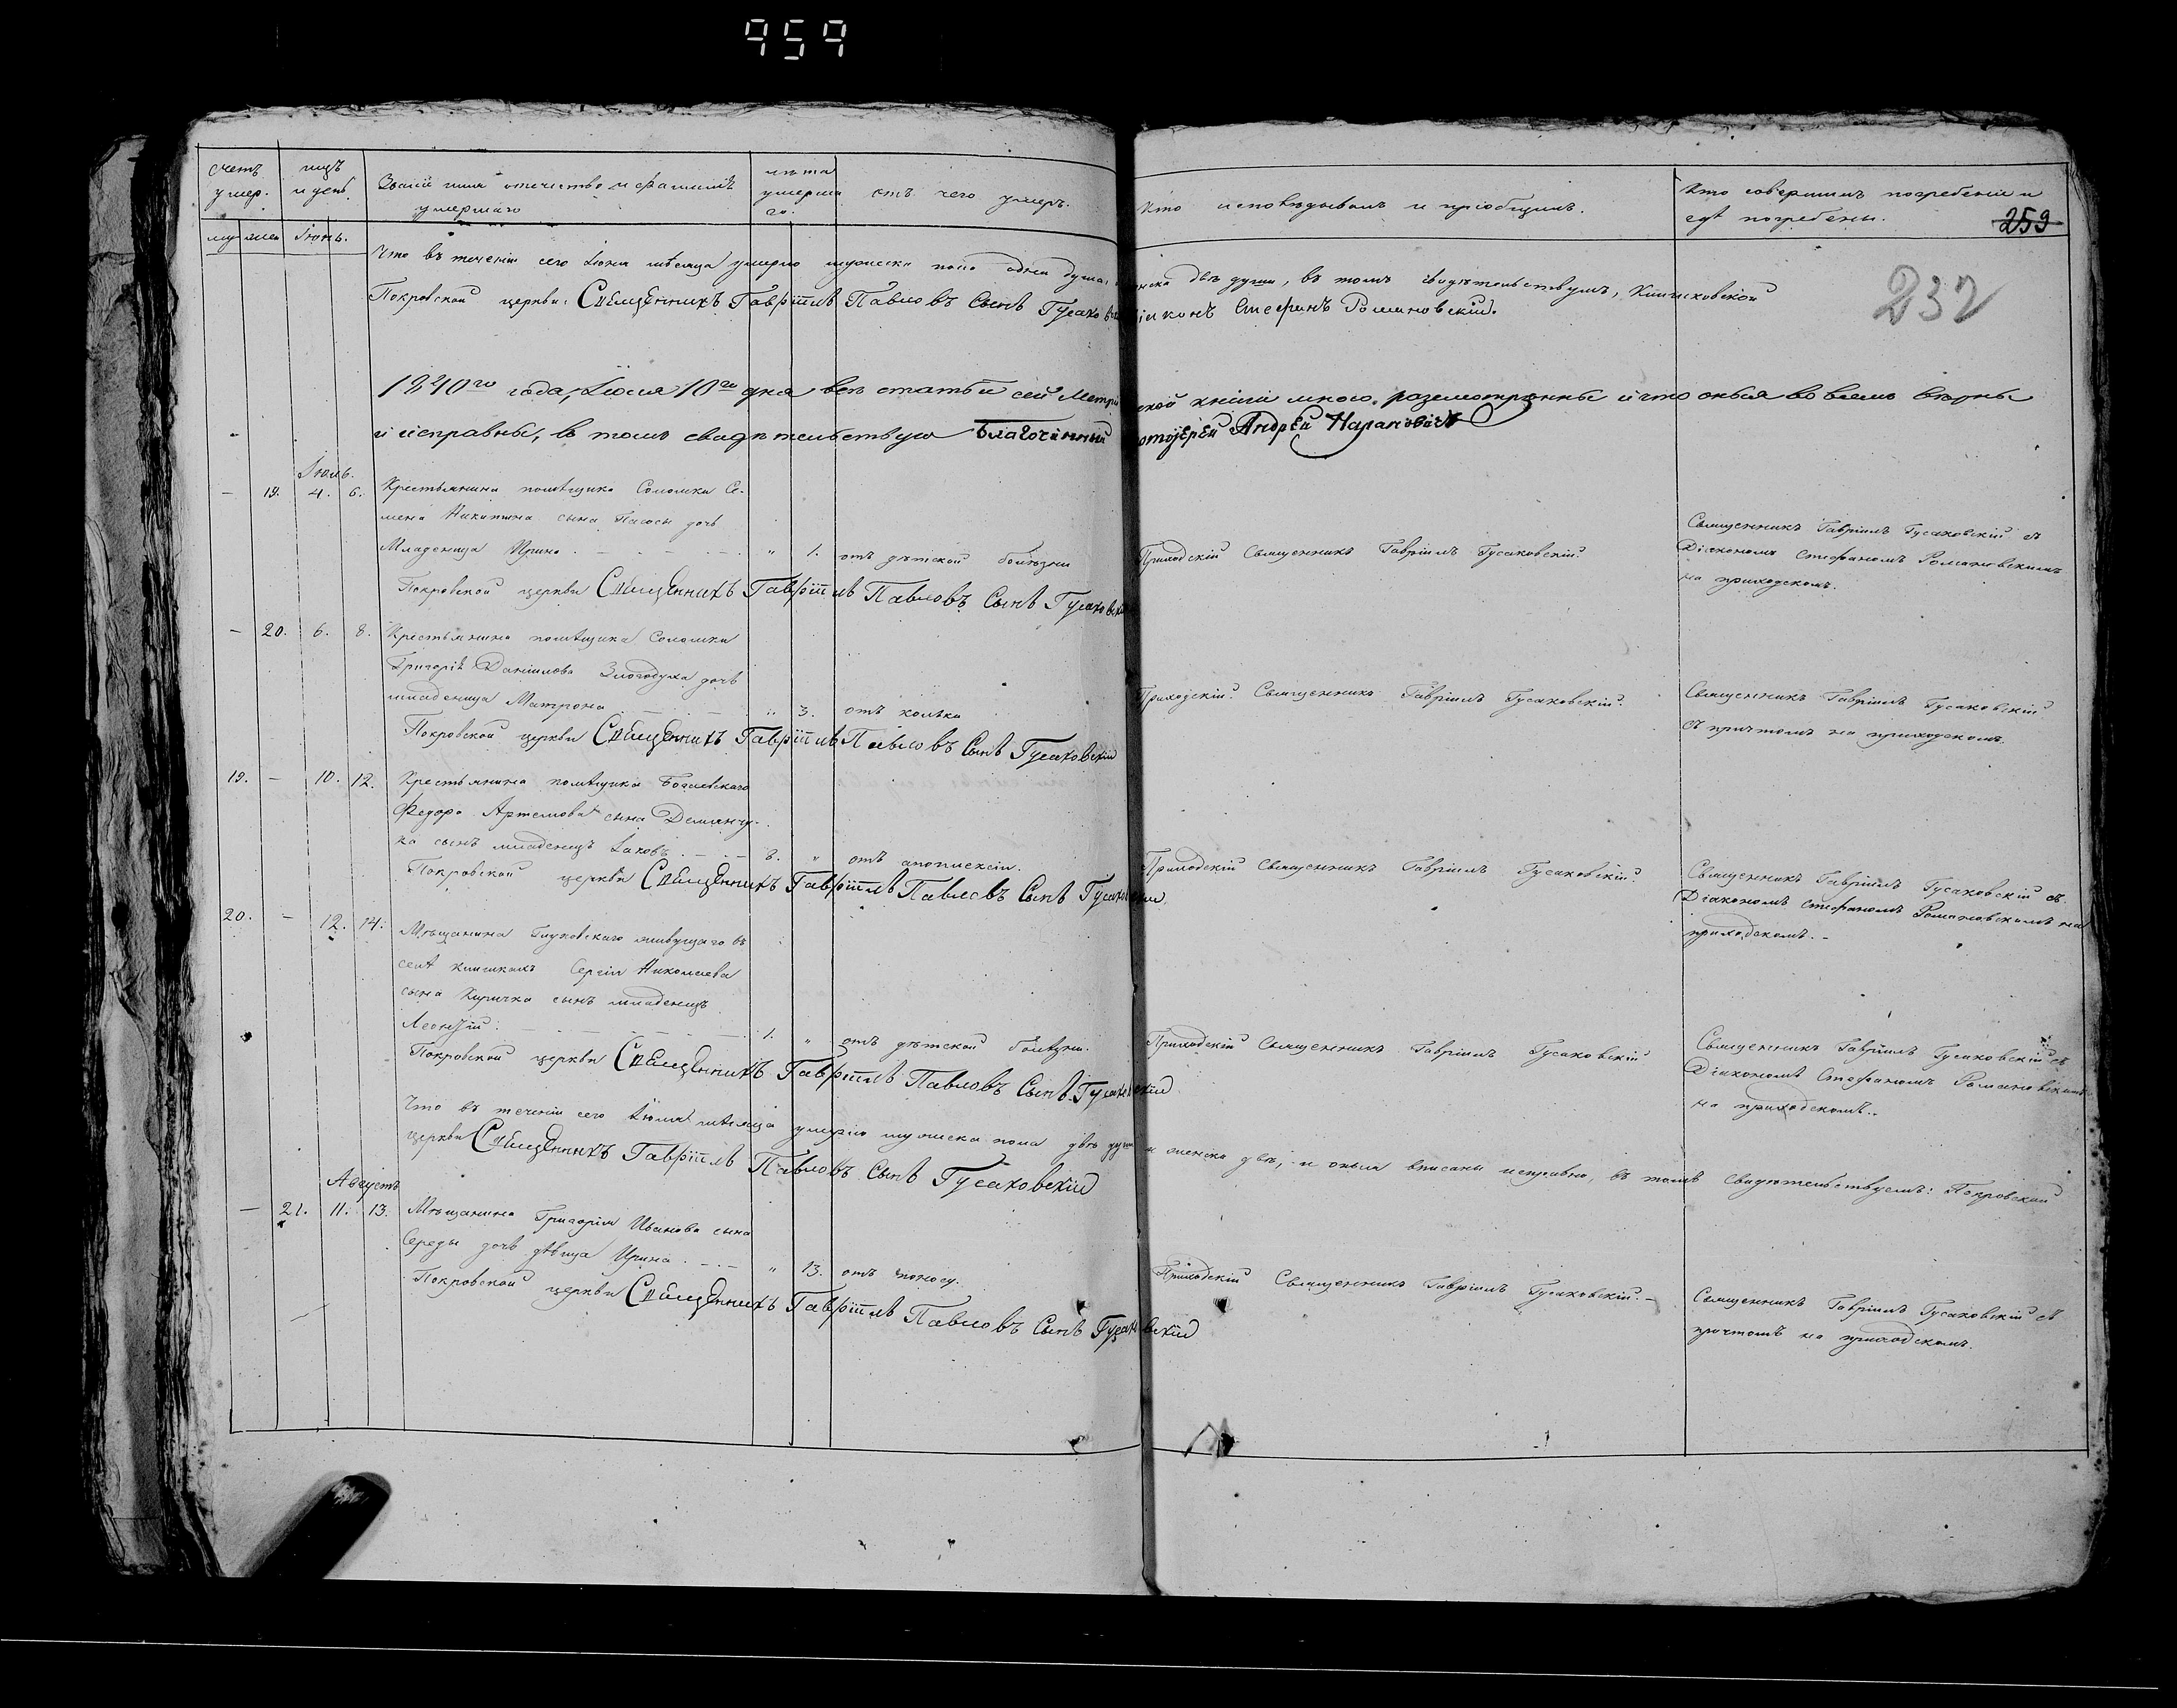 959
счетъ умер.
мцъ и день
Званіе имя отечество и фамилія
умершаго
лѣта умершаго.
отъ чего умеръ.
Кто исповѣдывалъ и пріобщилъ.
Кто совершилъ погребеніе и
гдѣ погребены.
259
232
му жен Іюнь.
Что въ теченіи сего Іюня мѣсяца умерло мужеска пола одна душа, женска двѣ души, въ томъ свидѣтельствуемъ,
Покровской церкви: Священникъ Гавріилъ Павловъ Сынъ Гусаковскій Діаконъ Стефанъ Романовскій.
1840го года, Іюля 10го дня всѣ статьи сей Метрической книги мною разсмотрѣнны и что оныя во всемъ вѣрны
и исправны, въ томъ свидѣтельствую Благочинный Протоіерей Андрей
Іюль.
– 19. 4. 6. Крестьянина помѣщика Соломки Се-
мена Никитина сына дочь
Младеница Ирина " 1. отъ дѣтской болѣзни
Приходскій Священникъ Гавріилъ Гусаковскій.
Священникъ Гавріилъ Гусаковскій съ
Діакономъ Стефаномъ Романовскимъ
на приходскомъ.
Покровской церкви Священникъ Гавріилъ Павловъ Сынъ Гусаковскій
– 20. 6. 8. Крестьянина помѣщика Соломки
Григорія Данилова дочь
младеница Матрона " 3. отъ
Приходскій Священникъ Гавріилъ Гусаковскій.
Священникъ Гавріилъ Гусаковскій
съ причтомъ на приходскомъ.
Покровской церкви Священникъ Гавріилъ Павловъ Сынъ Гусаковскій
19. – 10. 12. Крестьянина помѣщика
Федора Артемова сына Демянчу-
ка сынъ младенецъ Іаковъ 8. " отъ апоплексіи.
Приходскій Священникъ Гавріилъ Гусаковскій.
Священникъ Гавріилъ Гусаковскій съ
Діакономъ Стефаномъ Романовскимъ на
приходскомъ. –
Покровской церкви Священникъ Гавріилъ Павловъ Сынъ Гусаковскій
20. – 12. 14. Мѣщанина Глуховскаго живущаго въ
селѣ Сергія Николаева
сына Киричка сынъ младенецъ
Леонтій: 1. " отъ дѣтской болѣзни.
Приходскій Священникъ Гавріилъ Гусаковскій
Священникъ Гавріилъ Гусаковскій съ
Діакономъ Стефаномъ Романовскимъ
на приходскомъ.
Покровской церкви Священникъ Гавріилъ Павловъ Сынъ Гусаковскій
Что въ теченіи сего Іюля мѣсяца умерло мужеска пола двѣ души и женска двѣ, и оныя вписаны исправно, въ томъ свидѣтельствуемъ: Покровской
церкви Священникъ Гавріилъ Павловъ Сынъ Гусаковскій
Августъ
– 21. 11. 13. Мѣщанина Григорія Иванова сына
Середы дочь дѣвица Ирина " 13. отъ поносу.
Приходскій Священникъ Гавріилъ Гусаковскій. –
Священникъ Гавріилъ Гусаковскій съ
причтомъ на приходскомъ.
Покровской церкви Священникъ Гавріилъ Павловъ Сынъ Гусаковскій